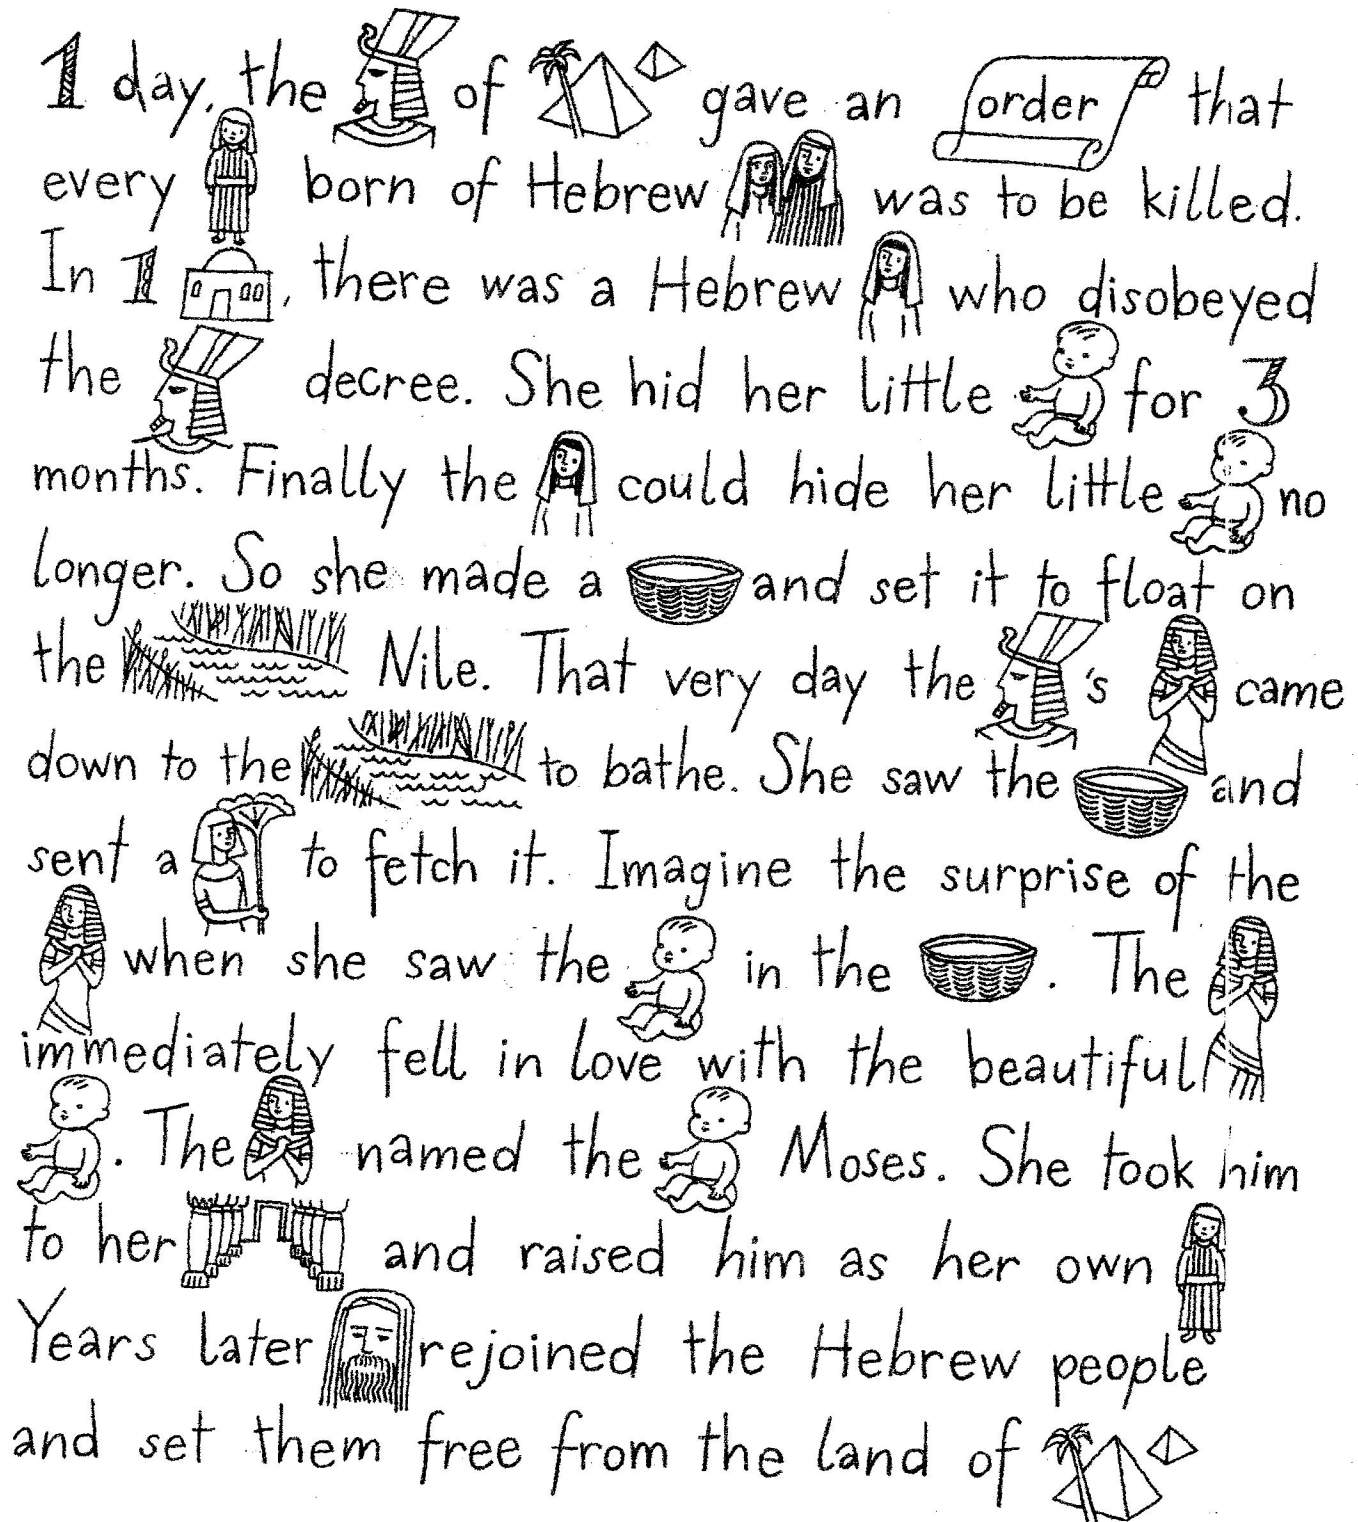 1 day, the of gave an order that
every born of Hebrew was to be killed.
In 1 , there was a Hebrew who disobeyed
the decree. She hid her little for 3
months. Finally the could hide her little no
longer. So she made a and set it to float on
the Nile. That very day the 's came
down to the to bathe. She saw the and
sent a to fetch it. Imagine the surprise of the
when she saw the in the . The
immediately fell in love with the beautiful
. The named the Moses. She took him
to her and raised him as her own
Years later rejoined the Hebrew people
and set them free from the land of